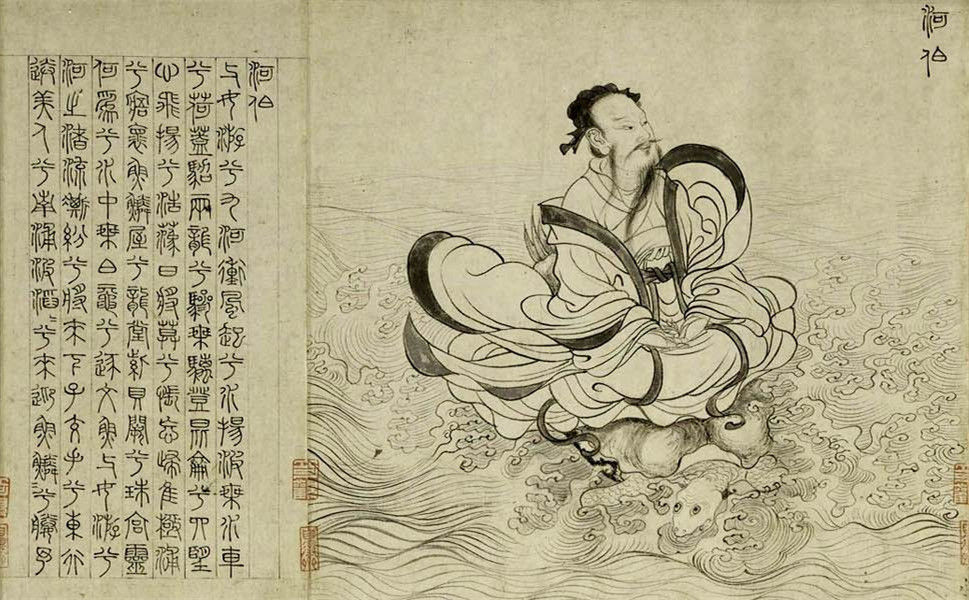 河伯
河伯
与女游兮九河衝風起兮水揚波乘水車
兮荷蓋駕兩龍兮驂乘螭登昆侖兮四望
心飛揚兮浩蕩日將莫兮悵忘歸惟極浦
兮寤懷魚鱗屋兮龍堂紫貝闕兮珠宮靈
何爲兮水中乘白黿兮逐文魚与女游兮
河之渚流澌紛兮將來下子交手兮東行
送美人兮南浦波滔〻兮來迎魚鱗〻兮媵予